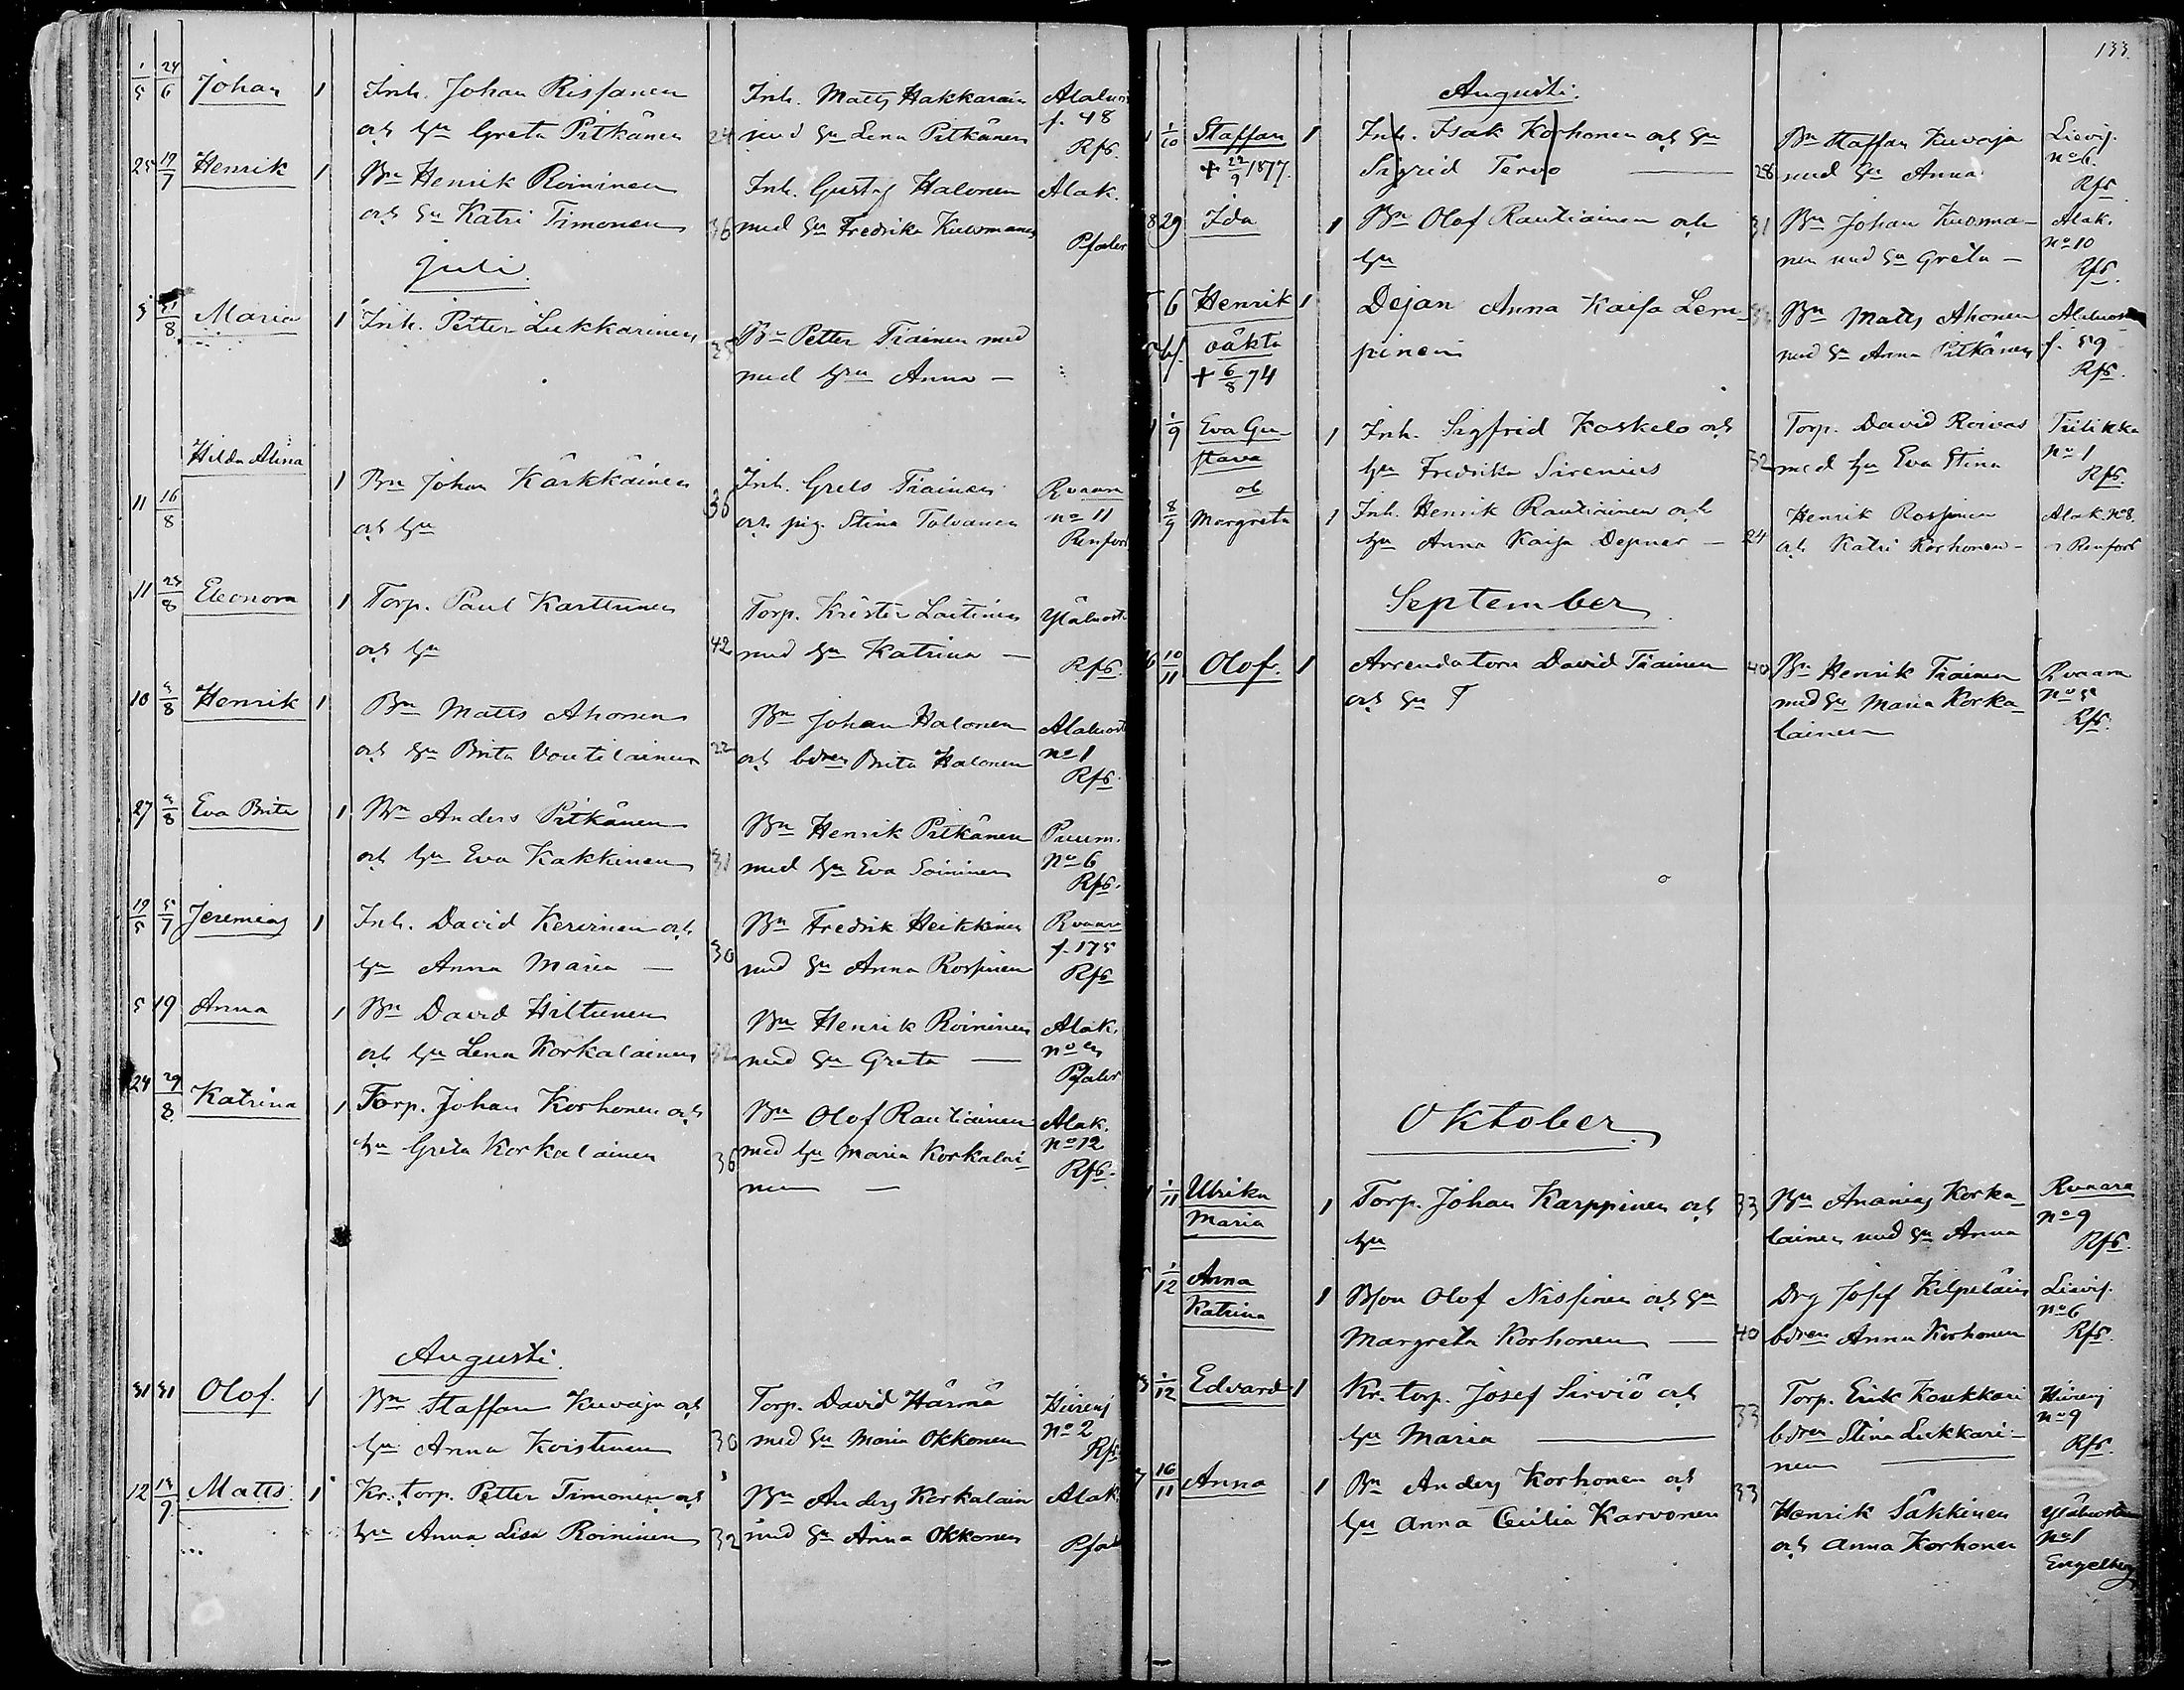 1/5 24/6 Johan 1 Inh. Johan Rissanen
och hu Greta Pitkänen 24
Inh. Matts Hakkarain
med hu Lena Pitkänen
f. 48
Rfs.
25 19/7 Henrik 1 Bn Henrik Roininen
och hu Katri Timonen 36
Inh. Gustaf Halonen
med hu Fredrika Kuosmanen
Alak.
Juli
Maria 1 Inh. Petter Lukkarinen
Bn Petter Tiainen med
med hu Anna —
Hilda Alina
11 16/8 1 Bn Johan Kärkkäinen
och hu 36
Inh. Grels Tiainen
och pig. Stina Tolvanen
Rvaara
no 11
11 Eleonora 1 Torp. Paul Karttunen
och hu 42
Torp. Krister Laitinen
med hu Katrina —
Rfs.
10 Henrik 1 Bn Matts Ahonen
och hu Brita Voutilainen 22
Bn Johan Halonen
och bdren Brita Halonen
no 1
Rfs.
27 Eva Brita 1 Bn Anders Pitkänen
och hu Eva Kakkinen 31
Bn Henrik Pitkänen
med hu Eva Soininen
Puum.
No 6
Rfs.
19/5 5/7 Jeremias 1 Inh. David Kervinen och
hu Anna Maria — 30
Bn Fredrik Heikkinen
med hu Anna Rossinen
Rvaara
f. 175
Rfs
5 19 Anna 1 Bn David Hiltunen
och hu Lena Korkalainen 32
Bn Henrik Roininen
med hu Greta —
Alak.
24 29/8 Katrina 1 Torp. Johan Korhonen och
hu Greta Korkalainen 36
Bn Olof Rautiainen
med hu Maria Korkalai-
nen —
Alak.
no 12
Rfs.
Augusti.
31 31 Olof. 1 Bn Staffan Kuvaja och
hu Anna Koistinen 30
Torp. David Härmä
med hu Maria Okkonen
no 2
Rfs
12 Matts. 1 Kr. torp. Petter Timonen och
hu Anna Lisa Roininen 32
Bn Anders Korkalain
med hu Anna Okkonen
Alak
133.
Augusti.
1/10 Staffan 1 Inh. Isak Korhonen och hu
+ 22/9 1877. Sigrid Tervo — 28
Bn Staffan Kuvaja
med hu Anna
no 6.
Rfs
29 Ida 1 Bn Olof Rautiainen och
hu 31
Bn Johan Kuosma-
nen med hu Greta —
Alak.
no 10
Rfs.
6 Henrik 1 Dejan Anna Kaisa Lem-
oäkta pinen
+ 6/8 74
Bn Matts Ahonen
med hu Anna Pitkänen
f. 59
Rfs.
1/9 Eva Gu- 1 Inh. Sigfrid Koskelo och
stava hu Fredrika Sirenius 32
Torp. David Roivas
med hu Eva Stina
no 1
Rfs.
8/9 Margreta 1 Inh. Henrik Rautiainen och
hu Anna Kaisa Depner — 24
Henrik Rossinen
och Katri Korhonen —
Alak. no 8.
September
10/11 Olof. 1 Arrendatorn David Tiainen
och hu T 40
Bn Henrik Tiainen
med hu Maria Korka-
lainen
Rvaara
Rfs.
Oktober.
1/11 Ulrika 1 Torp. Johan Karppinen och
Maria hu 33
Bn Ananias Korka-
lainen med hu Anna
Rvaara
no 9
Rfs.
1/12 Anna
Katrina 1 Bson Olof Nissinen och hu
Margreta Korhonen — 40
Drg Josef Kilpeläin
bdren Anna Korhonen
no 6
Rfs.
1/12 Edvard 1 Kr. torp. Josef Sirviö och
hu Maria — 33
Torp. Erik Koukkari
bdren Stina Lukkari-
nen —
no 9
Rfs.
16/11 Anna 1 Bn Anders Korhonen och
hu Anna Cecilia Karvonen 33
Henrik Säkkinen
och Anna Korhonen
no 1
Engelberg